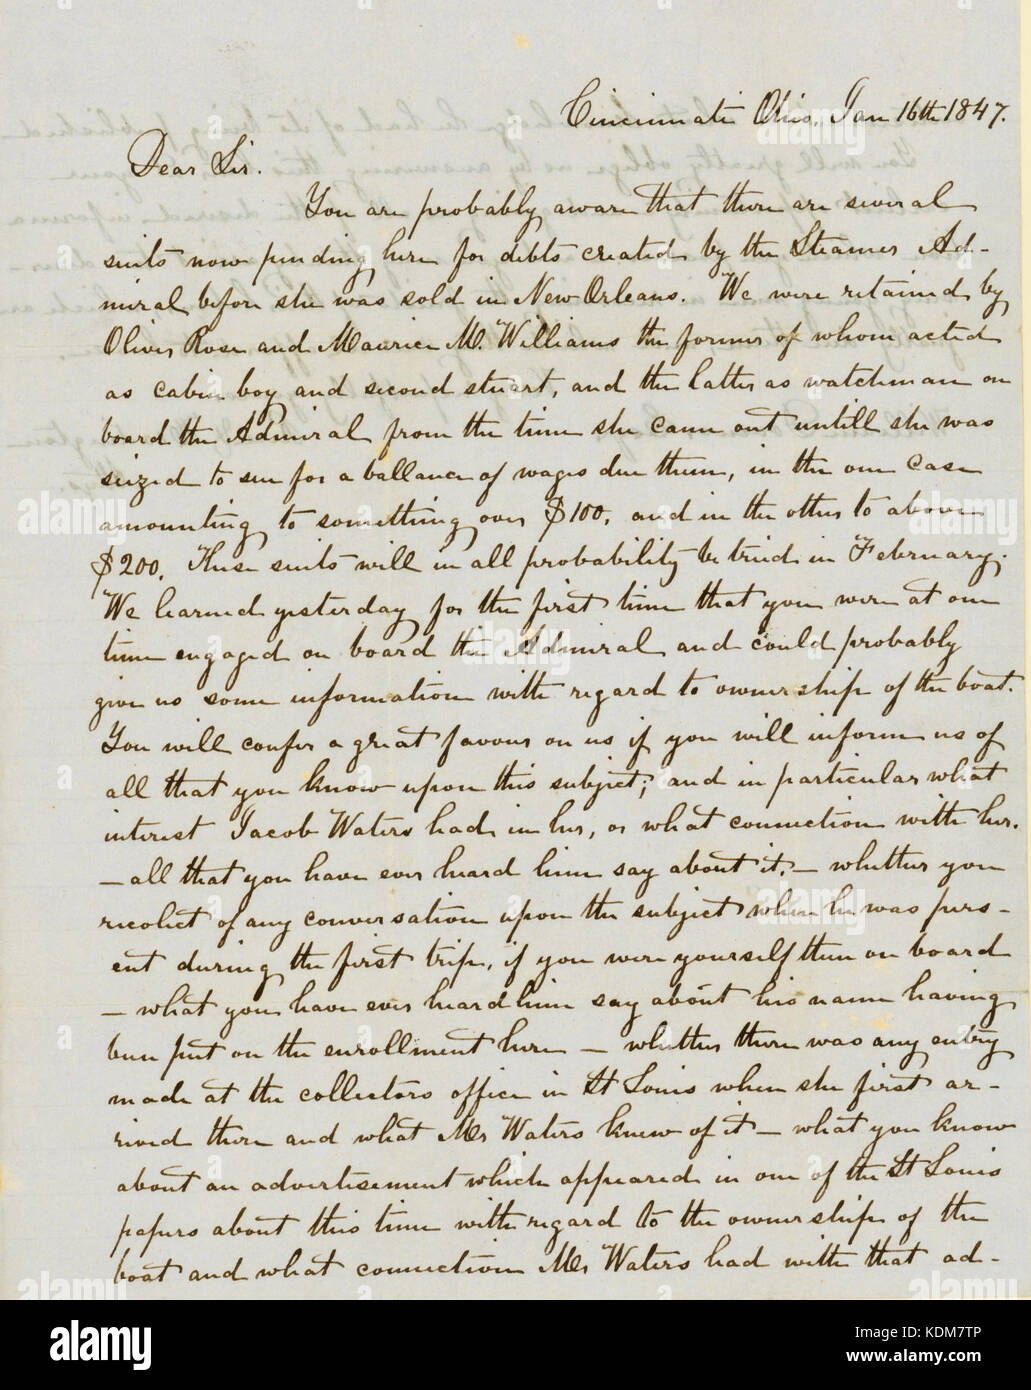 Cincinnati Ohio, Jan 16th 1847.
Dear Sir.
You are probably aware that there are several
suits now pending here for debts created by the Steamer Ad-
miral before she was sold in New Orleans. We were retained by
Oliver Rose and Maurice M. Williams the former of whom acted
as cabin boy and second stuart, and the latter as watchman on
board the Admiral from the time she came out untill she was
seized to sue for a ballance of wages due them, in the one case
amounting to something over $100. and in the other to above
$200. These suits will in all probability be tried in February.
We learned yesterday for the first time that you were at one
time engaged on board the Admiral and could probably
give us some information with regard to ownership of the boat.
You will confer a great favour on us if you will inform us of
all that you know upon this subject; and in particular what
interest Jacob Waters had in her, or what connection with her.
— all that you have ever heard him say about it. — whether you
recolect of any conversation upon the subject when he was pres-
ent during the first trip, if you were yourself then on board
— what you have ever heard him say about his name having
been put on the enrollment here — whether there was any entry
made at the collectors office in St Louis when she first ar-
rived there and what Mr Waters knew of it — what you know
about an advertisement which appeared in one of the St Louis
papers about this time with regard to the ownership of the
boat and what connection Mr Waters had with that ad-
alamy
Image ID: KDM7TP
www.alamy.com